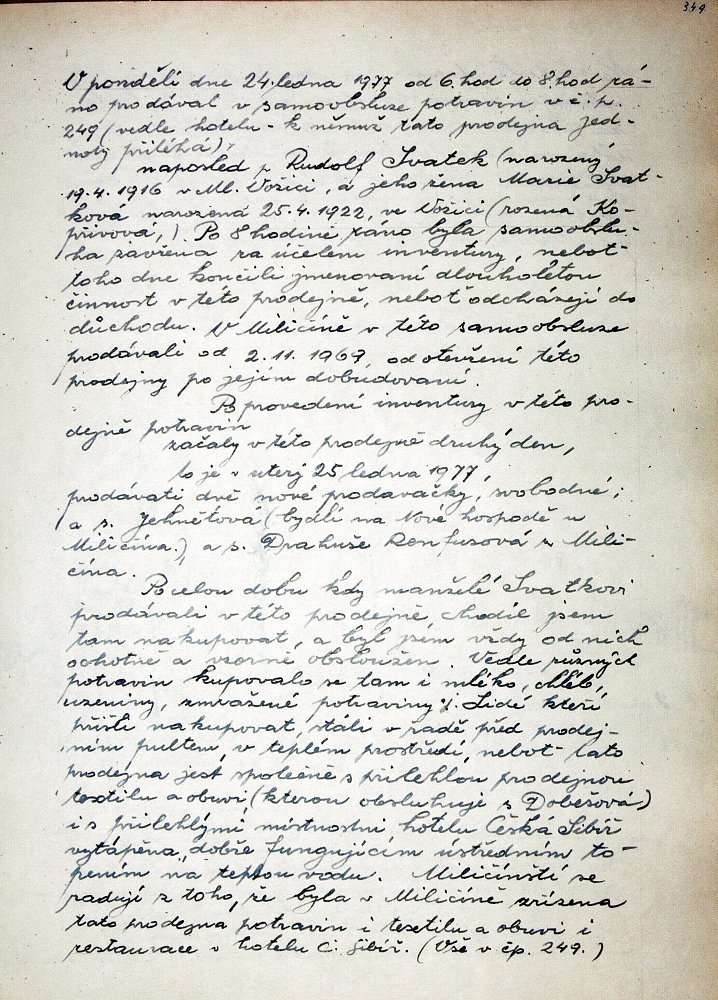 349
V pondělí dne 24. ledna 1977 od 6. hod do 8. hod rá-
no prodával v samoobsluze potravin v č. p.
249 (vedle hotelu - k němuž tato prodejna jed-
noty přiléhá),
naposled p Rudolf Svatek (narozený
19. 4. 1916 v Ml. Vožici, a jeho žena Marie Svat-
ková narozená 25. 4. 1922, ve Vožici (rozená Ko-
přivová,) Po 8 hodině ráno byla samoobslu-
ha zavřena za účelem inventury, neboť
toho dne končili jmenovaní dlouholetou
činnost v této prodejně, neboť odcházejí do
důchodu. V Miličíně v této samoobsluze
prodávali od 2. 11. 1969, od otevření této
prodejny po jejím dobudovaní.
Po provedení inventury v této pro-
dejně potravin
začaly v této prodejně druhý den,
to je v uterý 25 ledna 1977,
prodávati dvě nové prodavačky, svobodné;
a s. Jehnětová (bydlí na Nové hospodě u
Miličína.) a s. Drahuše Renfusová z Mili-
čína.
Po celou dobu kdy manželé Svatkovi
prodávali v této prodejně, chodil jsem
tam nakupovat, a byl jsem vždy od nich
ochotně a vzorně obsloužen. Vedle různých
potravin kupovalo se tam i mléko, chléb,
uzeniny, zmražené potraviny j. Lidé kteří
přišli nakupovat, stáli v řadě před prodej-
ním pultem, v teplém prostředí, neboť tato
prodejna jest, společně s přilehlou prodejnou
textilu a obuvi, (kterou obsluhuje s Dobešová)
i s přilehlými místnostmi hotelu Česká Sibiř
vytápěna, dobře fungujícím ústředním to-
pením na teplou vodu. Miličínští se
radují z toho, že byla v Miličíně zřízena
tato prodejna potravin i textilu a obuvi i
restaurace v hotelu Č. Sibiř. (Vše v čp. 249.)